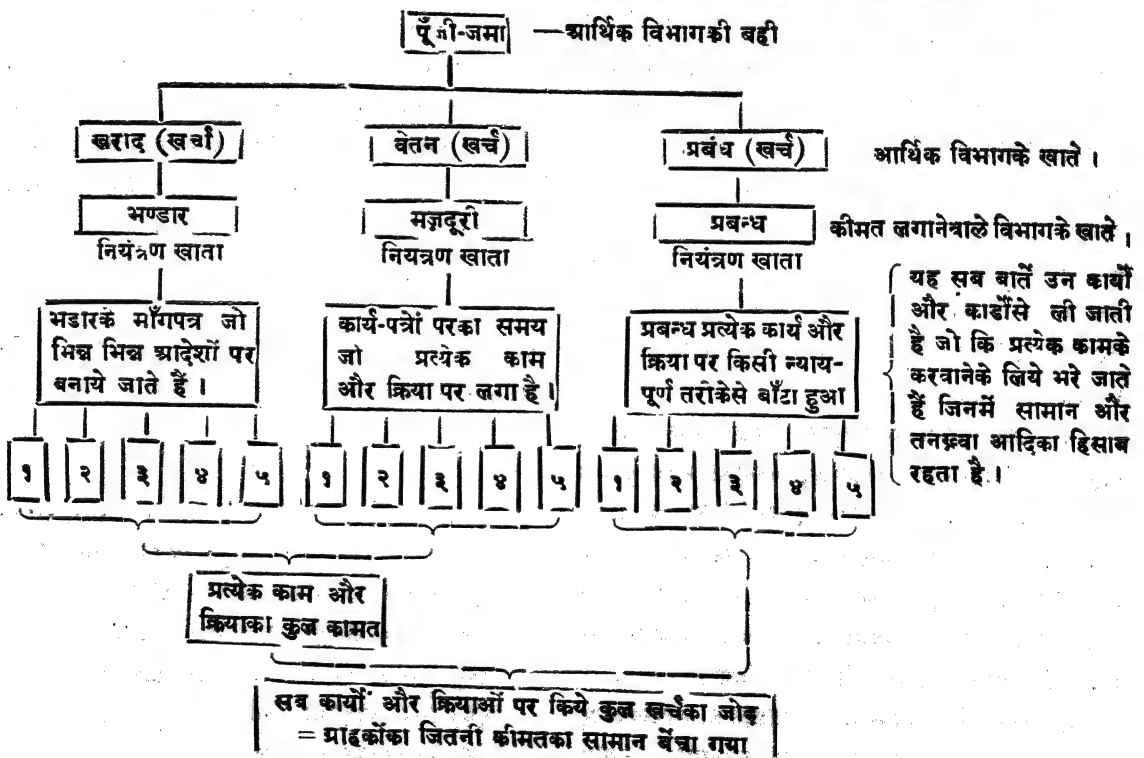 पूँजी-जमा —आर्थिक विभागकी बही
खराद (खर्चा) वेतन (खर्च) प्रबंध (खर्च) आर्थिक विभागके खाते ।
भण्डार मज़दूरी प्रबन्ध कीमत लगानेवाले विभागके खाते ।
नियंत्रण खाता नियंत्रण खाता नियंत्रण खाता
भडारके माँगपत्र जो
भिन्न भिन्न आदेशों पर
बनाये जाते हैं ।
कार्य-पत्रों परका समय
जो प्रत्येक काम
और क्रिया पर लगा है ।
प्रबन्ध प्रत्येक कार्य और
क्रिया पर किसी न्याय-
पूर्ण तरीकेसे बाँटा हुआ
यह सब बातें उन कार्यों
और कार्डोंसे ली जाती
है जो कि प्रत्येक कामके
करवानेके लिये भरे जाते
हैं जिनमें सामान और
तनख़्वा आदिका हिसाब
रहता है ।
१ २ ३ ४ ५ १ २ ३ ४ ५ १ २ ३ ४ ५
प्रत्येक काम और
क्रियाका कुल कामत
सब कार्यों और क्रियाओं पर किये कुल खर्चका जोड़
= ग्राहकोंका जितनी कीमतका सामान बेंचा गया